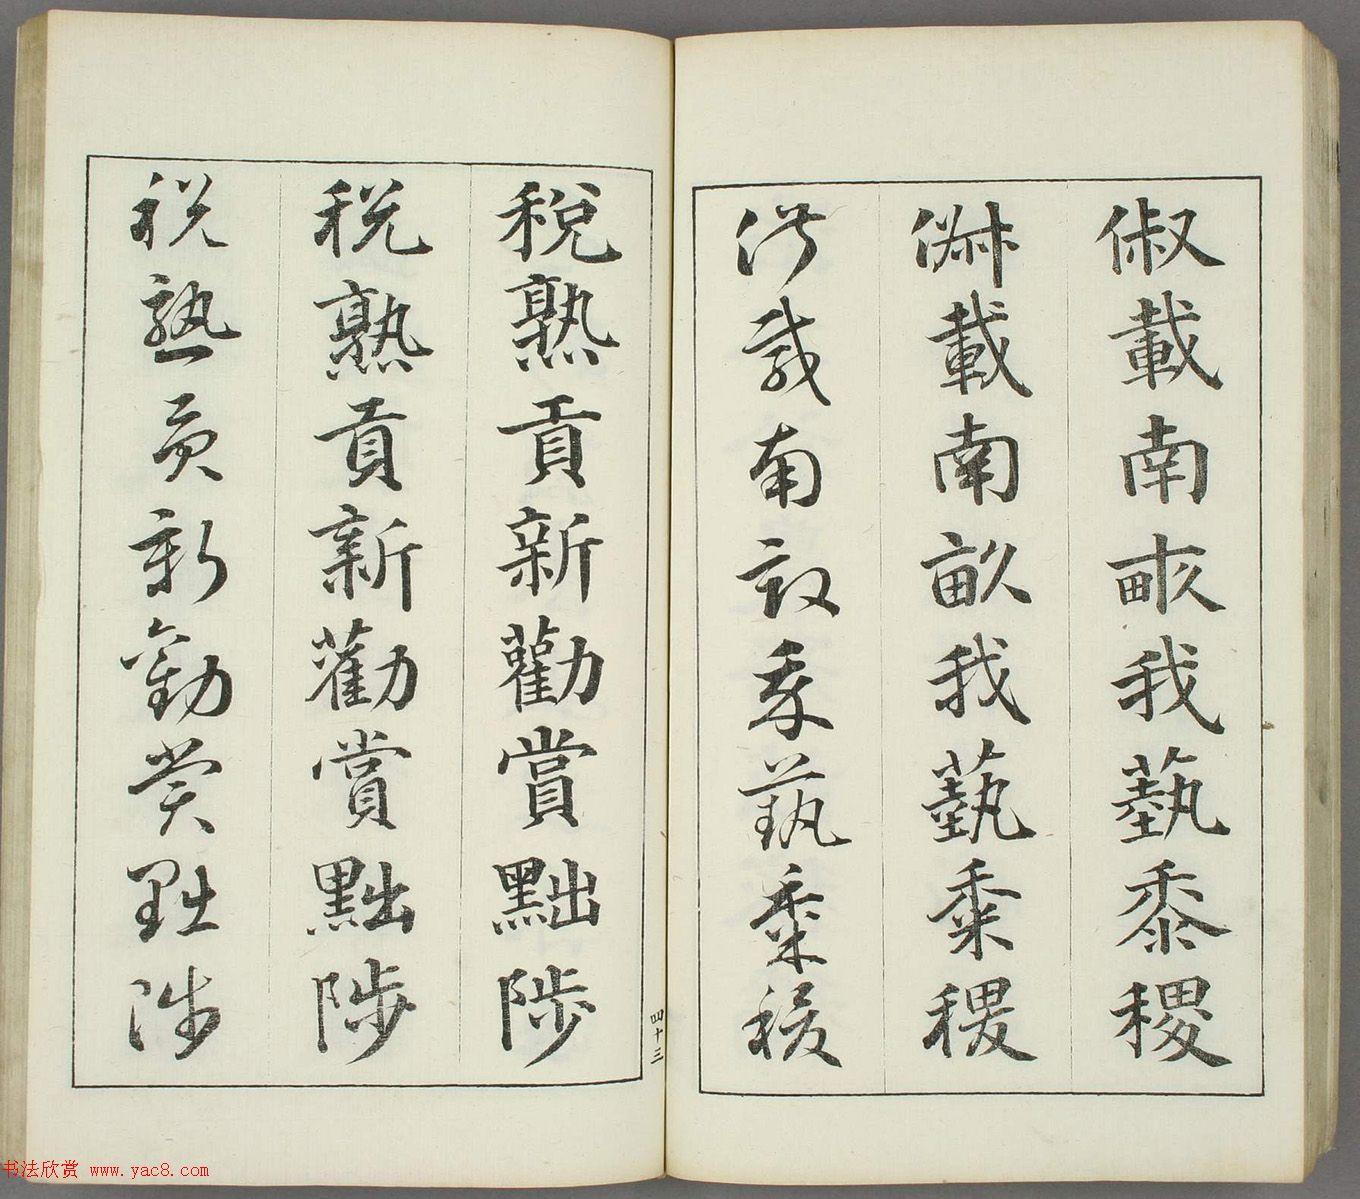 俶載南畝我藝黍稷
俶載南畝我藝黍稷
俶載南畝我藝黍稷
稅熟貢新勸賞黜陟
稅熟貢新勸賞黜陟
稅熟貢新勸賞黜陟
四十三
书法欣赏 www.yac8.com